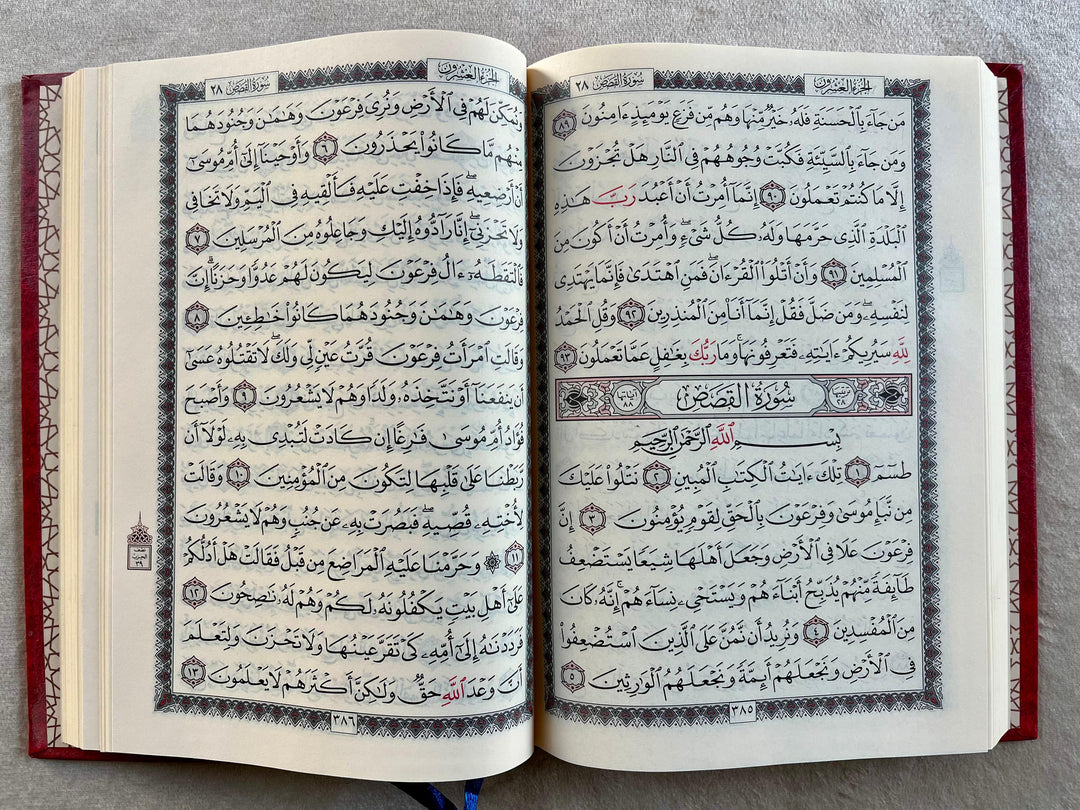 سُورَةُ القَصَصِ ٢٨
الجزءُ العِشْرُونَ
مَن جَآءَ بِٱلْحَسَنَةِ فَلَهُۥ خَيْرٌ مِّنْهَا وَهُم مِّن فَزَعٍ يَوْمَئِذٍ ءَامِنُونَ ٨٩
وَمَن جَآءَ بِٱلسَّيِّئَةِ فَكُبَّتْ وُجُوهُهُمْ فِى ٱلنَّارِ هَلْ تُجْزَوْنَ
إِلَّا مَا كُنتُمْ تَعْمَلُونَ ٩٠ إِنَّمَآ أُمِرْتُ أَنْ أَعْبُدَ رَبَّ هَٰذِهِ
ٱلْبَلْدَةِ ٱلَّذِى حَرَّمَهَا وَلَهُۥ كُلُّ شَىْءٍ ۖ وَأُمِرْتُ أَنْ أَكُونَ مِنَ
ٱلْمُسْلِمِينَ ٩١ وَأَنْ أَتْلُوَا۟ ٱلْقُرْءَانَ ۖ فَمَنِ ٱهْتَدَىٰ فَإِنَّمَا يَهْتَدِى
لِنَفْسِهِۦ ۖ وَمَن ضَلَّ فَقُلْ إِنَّمَآ أَنَا۠ مِنَ ٱلْمُنذِرِينَ ٩٢ وَقُلِ ٱلْحَمْدُ
لِلَّهِ سَيُرِيكُمْ ءَايَٰتِهِۦ فَتَعْرِفُونَهَا ۚ وَمَا رَبُّكَ بِغَٰفِلٍ عَمَّا تَعْمَلُونَ ٩٣
ترتيبها ٢٨ سُورَةُ القَصَصِ آياتها ٨٨
بِسْمِ ٱللَّهِ ٱلرَّحْمَٰنِ ٱلرَّحِيمِ
طسٓمٓ ١ تِلْكَ ءَايَٰتُ ٱلْكِتَٰبِ ٱلْمُبِينِ ٢ نَتْلُوا۟ عَلَيْكَ
مِن نَّبَإِ مُوسَىٰ وَفِرْعَوْنَ بِٱلْحَقِّ لِقَوْمٍ يُؤْمِنُونَ ٣ إِنَّ
فِرْعَوْنَ عَلَا فِى ٱلْأَرْضِ وَجَعَلَ أَهْلَهَا شِيَعًا يَسْتَضْعِفُ
طَآئِفَةً مِّنْهُمْ يُذَبِّحُ أَبْنَآءَهُمْ وَيَسْتَحْىِۦ نِسَآءَهُمْ ۚ إِنَّهُۥ كَانَ
مِنَ ٱلْمُفْسِدِينَ ٤ وَنُرِيدُ أَن نَّمُنَّ عَلَى ٱلَّذِينَ ٱسْتُضْعِفُوا۟
فِى ٱلْأَرْضِ وَنَجْعَلَهُمْ أَئِمَّةً وَنَجْعَلَهُمُ ٱلْوَٰرِثِينَ ٥
٣٨٥
سُورَةُ القَصَصِ ٢٨
الجزءُ العِشْرُونَ
وَنُمَكِّنَ لَهُمْ فِى ٱلْأَرْضِ وَنُرِىَ فِرْعَوْنَ وَهَٰمَٰنَ وَجُنُودَهُمَا
مِنْهُم مَّا كَانُوا۟ يَحْذَرُونَ ٦ وَأَوْحَيْنَآ إِلَىٰٓ أُمِّ مُوسَىٰٓ
أَنْ أَرْضِعِيهِ ۖ فَإِذَا خِفْتِ عَلَيْهِ فَأَلْقِيهِ فِى ٱلْيَمِّ وَلَا تَخَافِى
وَلَا تَحْزَنِىٓ ۖ إِنَّا رَآدُّوهُ إِلَيْكِ وَجَاعِلُوهُ مِنَ ٱلْمُرْسَلِينَ ٧
فَٱلْتَقَطَهُۥٓ ءَالُ فِرْعَوْنَ لِيَكُونَ لَهُمْ عَدُوًّا وَحَزَنًا ۗ إِنَّ
فِرْعَوْنَ وَهَٰمَٰنَ وَجُنُودَهُمَا كَانُوا۟ خَٰطِـِٔينَ ٨
وَقَالَتِ ٱمْرَأَتُ فِرْعَوْنَ قُرَّتُ عَيْنٍ لِّى وَلَكَ ۖ لَا تَقْتُلُوهُ عَسَىٰٓ
أَن يَنفَعَنَآ أَوْ نَتَّخِذَهُۥ وَلَدًا وَهُمْ لَا يَشْعُرُونَ ٩ وَأَصْبَحَ
فُؤَادُ أُمِّ مُوسَىٰ فَٰرِغًا ۖ إِن كَادَتْ لَتُبْدِى بِهِۦ لَوْلَآ أَن
رَّبَطْنَا عَلَىٰ قَلْبِهَا لِتَكُونَ مِنَ ٱلْمُؤْمِنِينَ ١٠ وَقَالَتْ
لِأُخْتِهِۦ قُصِّيهِ ۖ فَبَصُرَتْ بِهِۦ عَن جُنُبٍ وَهُمْ لَا يَشْعُرُونَ
١١ ۞ وَحَرَّمْنَا عَلَيْهِ ٱلْمَرَاضِعَ مِن قَبْلُ فَقَالَتْ هَلْ أَدُلُّكُمْ
عَلَىٰٓ أَهْلِ بَيْتٍ يَكْفُلُونَهُۥ لَكُمْ وَهُمْ لَهُۥ نَٰصِحُونَ ١٢
فَرَدَدْنَٰهُ إِلَىٰٓ أُمِّهِۦ كَىْ تَقَرَّ عَيْنُهَا وَلَا تَحْزَنَ وَلِتَعْلَمَ
أَنَّ وَعْدَ ٱللَّهِ حَقٌّ وَلَٰكِنَّ أَكْثَرَهُمْ لَا يَعْلَمُونَ ١٣
نصف
الحزب
٣٩
٣٨٦